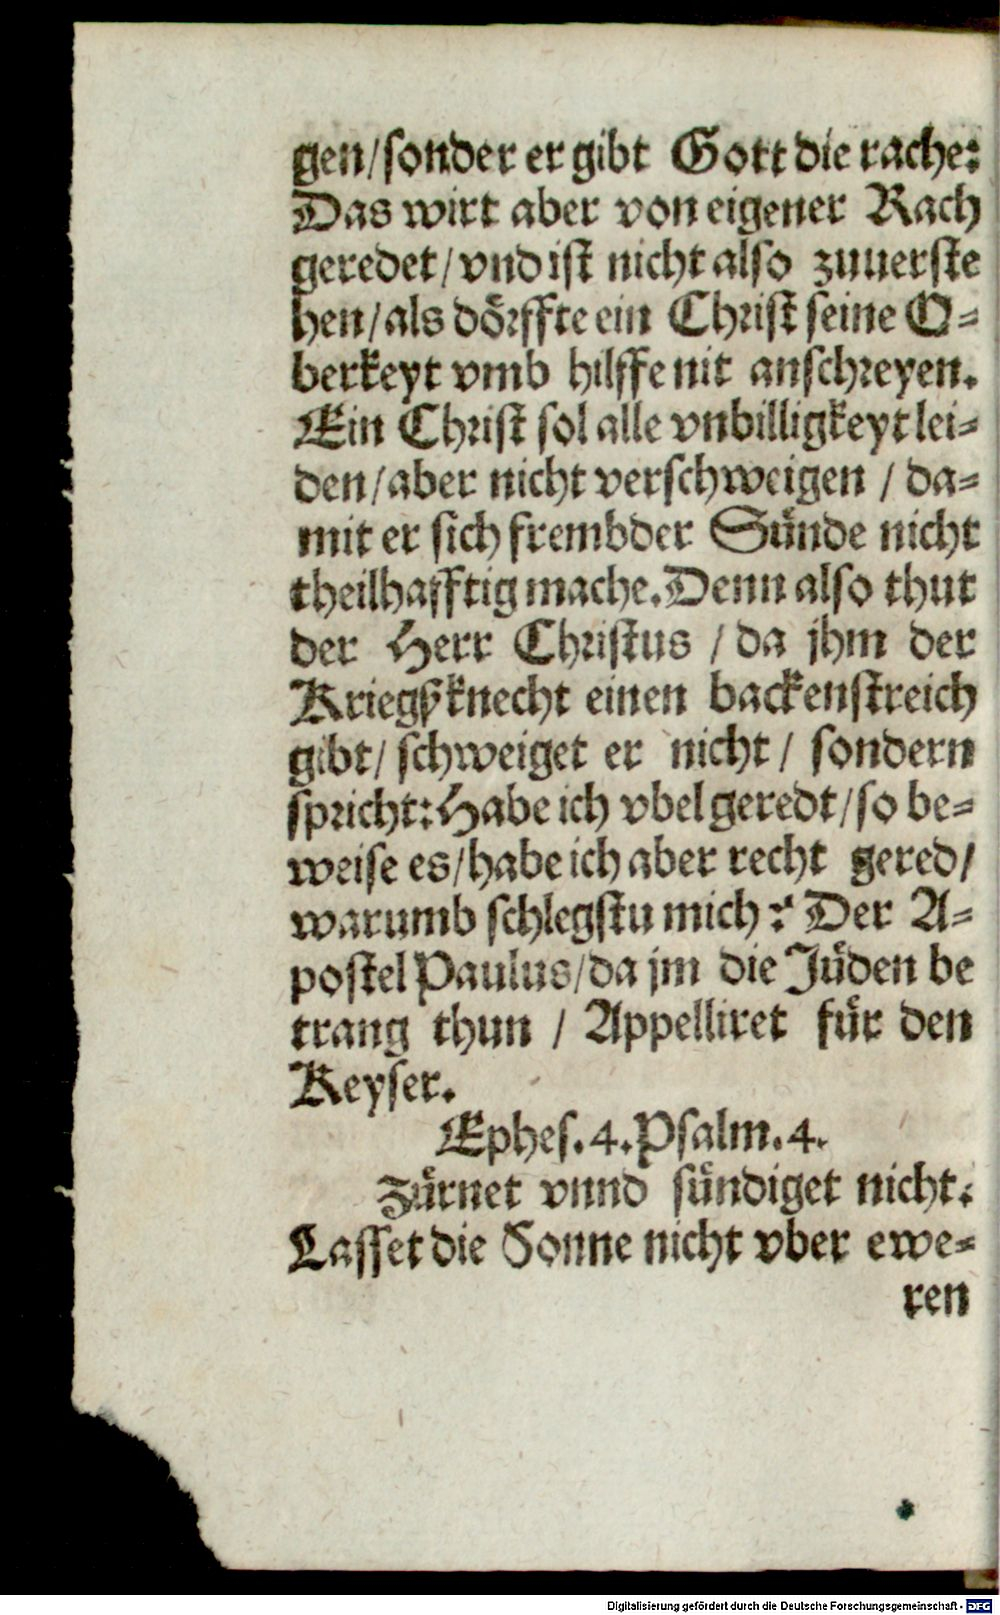 gen/sonder er gibt Gott die rache:
Das wirt aber von eigener Rach
geredet/vnd ist nicht also zuuerste
hen/als dörffte ein Christ seine O-
berkeyt vmb hilffe nit anschreyen.
Ein Christ sol alle vnbilligkeyt lei-
den/aber nicht verschweigen / da-
mit er sich frembder Sünde nicht
theilhafftig mache. Denn also thut
der Herr Christus / da jhm der
Kriegßknecht einen backenstreich
gibt/ schweiget er nicht/ sondern
spricht: Habe ich vbel geredt/so be-
weise es/habe ich aber recht gered/
warumb schlegstu mich? Der A-
postel Paulus/da jm die Jüden be
trang thun / Appelliret für den
Keyser.
Ephes. 4. Psalm. 4.
Zürnet vnnd sündiget nicht.
Lasset die Sonne nicht vber ewe-
ren
Digitalisierung gefördert durch die Deutsche Forschungsgemeinschaft - DFG